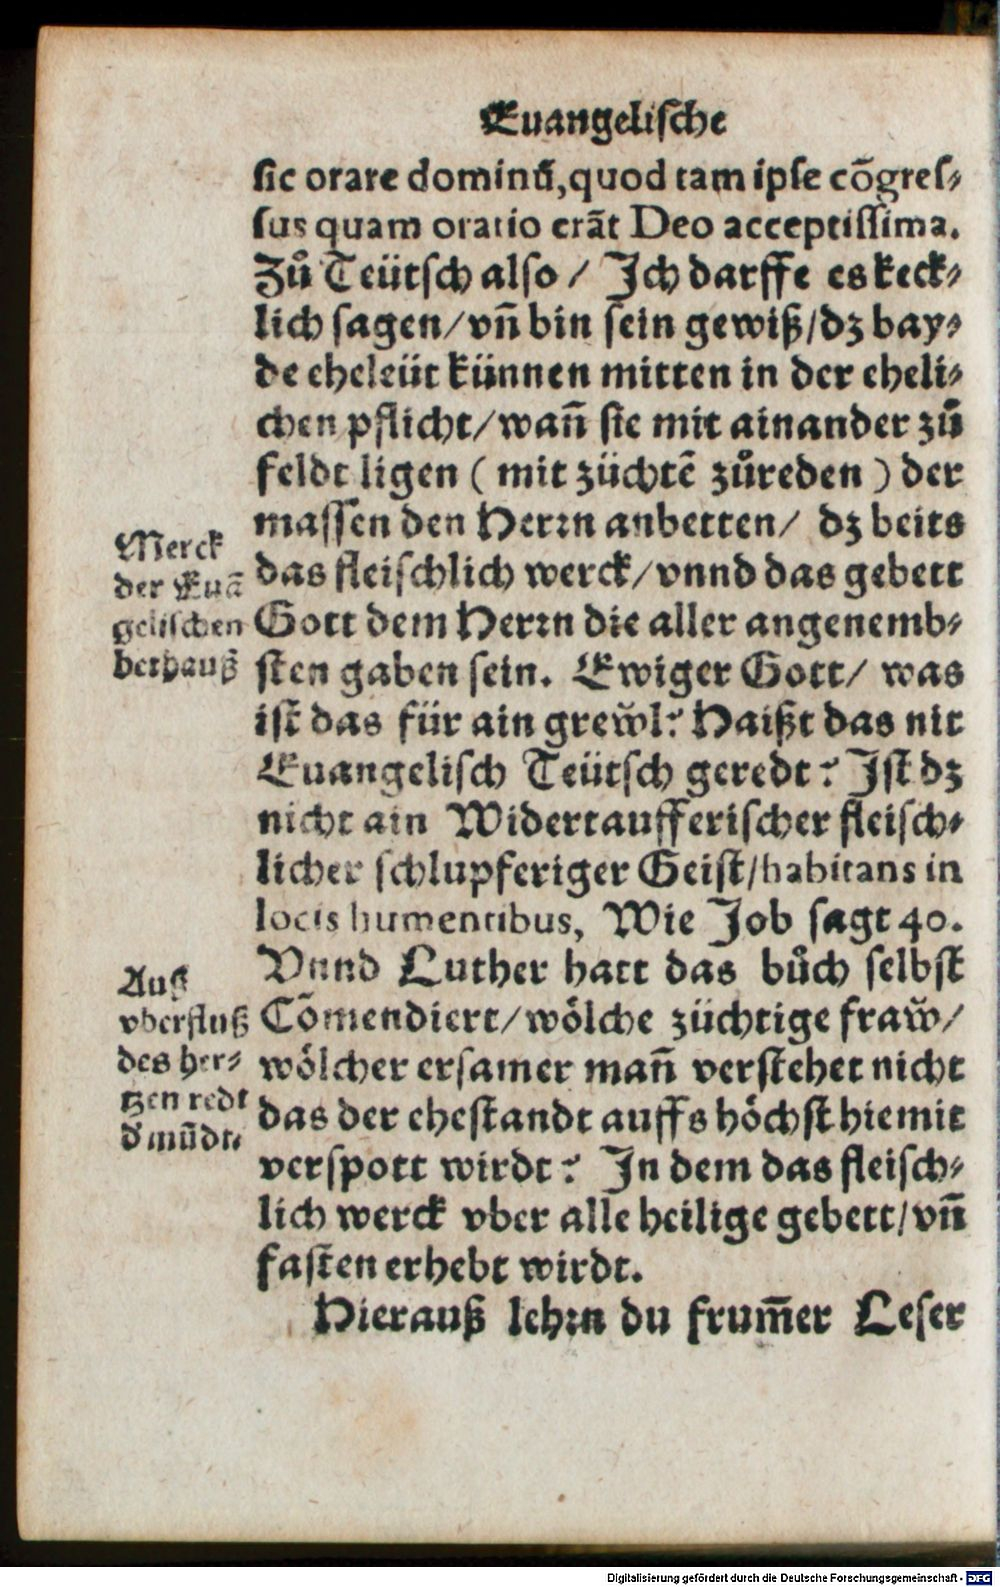 Euangelische
sic orare dominū, quod tam ipse cōgres⸗
sus quam oratio erāt Deo acceptissima.
Zů Teütsch also / Jch darffe es keck⸗
lich sagen / vn̄ bin sein gewiß / dz bay⸗
de eheleüt künnen mitten in der eheli⸗
chen pflicht / wañ sie mit ainander zů
feldt ligen ( mit züchtē zůreden ) der
massen den Herꝛn anbetten / dz beits
das fleischlich werck / vnnd das gebett
Gott dem Herꝛn die aller angenemb⸗
sten gaben sein. Ewiger Gott / was
ist das für ain grew̆l? Haißt das nit
Euangelisch Teütsch geredt? Jst dz
nicht ain Widertaufferischer fleisch⸗
licher schlupferiger Geist / habitans in
locis humentibus, Wie Job sagt 40.
Vnnd Luther hatt das bůch selbst
Cōmendiert / wölche züchtige fraw̆ /
wölcher ersamer mañ verstehet nicht
das der ehestandt auffs höchst hiemit
verspott wirdt? Jn dem das fleisch⸗
lich werck vber alle heilige gebett / vn̄
fasten erhebt wirdt.
Hierauß lehꝛn du frum̄er Leser
Merck
der Euā
gelischen
bethauß
Auß
vberfluß
des her⸗
tzen redt
d̄ mūdt.
Digitalisierung gefördert durch die Deutsche Forschungsgemeinschaft - DFG